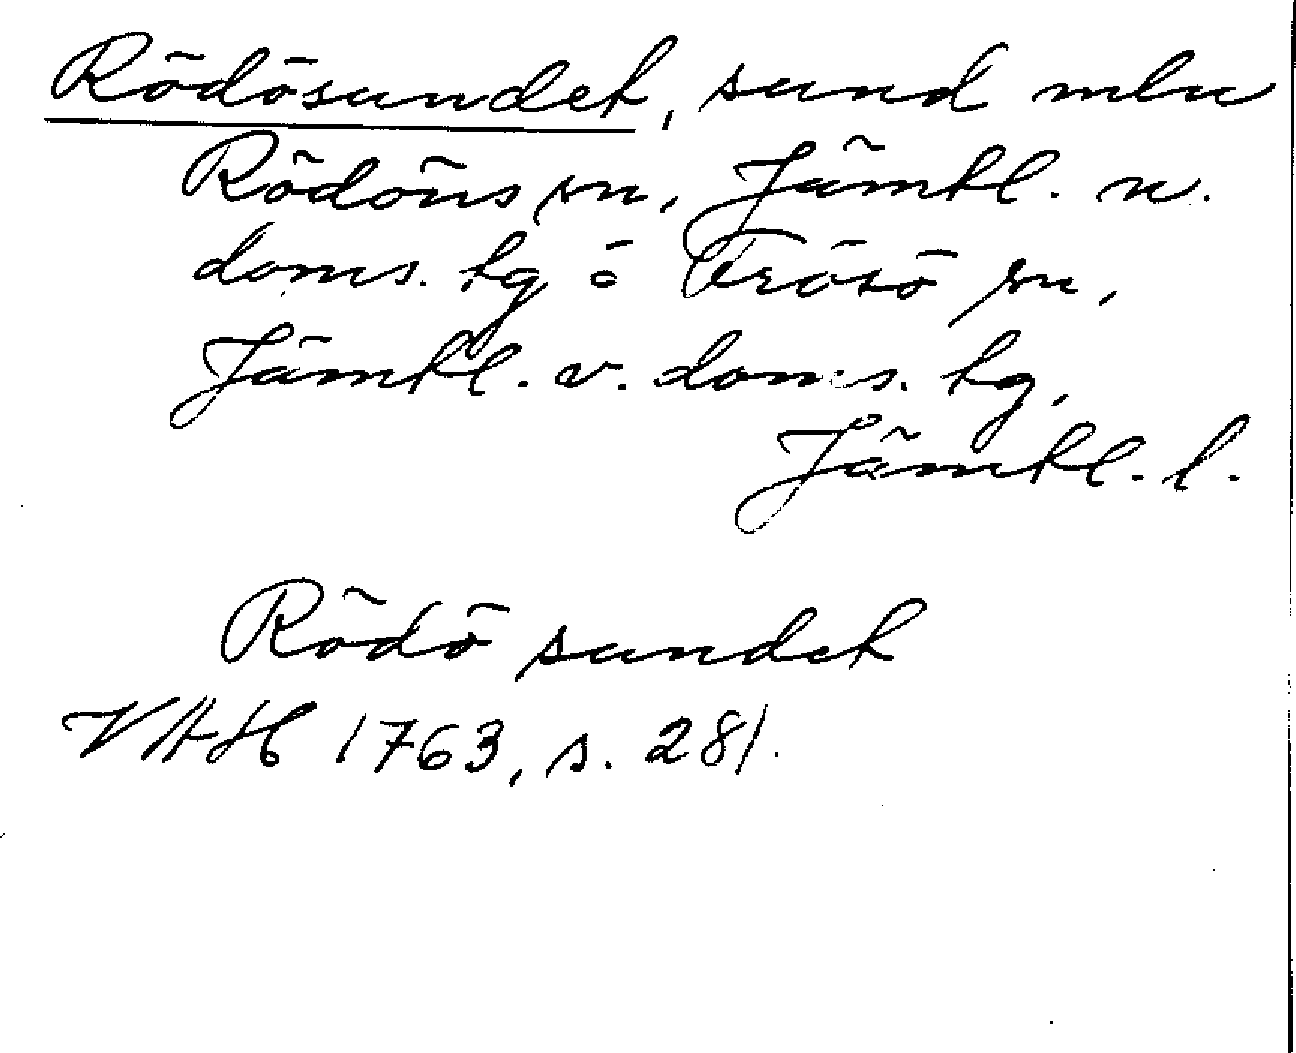 Rödösundet, sund mln
Rödöns sn, Jämtl. n.
doms. hg o Frösö sn,
Jämtl. v. doms. hg,
Jämtl. l.
Rödö sundet
VAH 1763, s. 281.